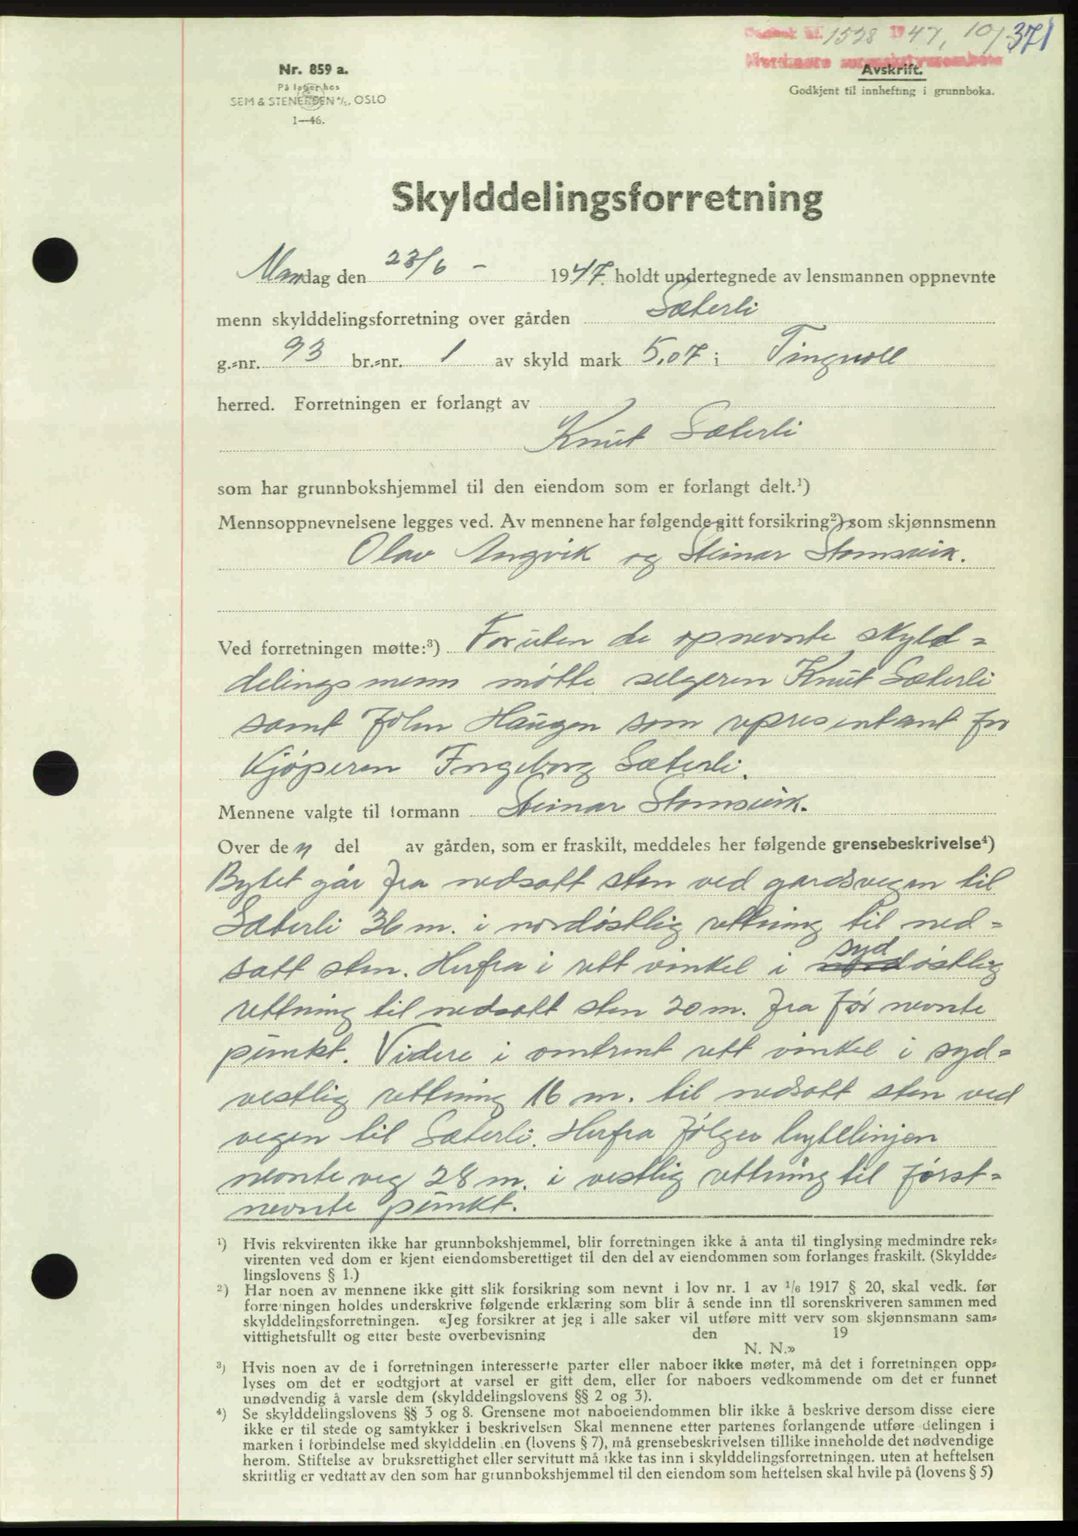 Dagbok nr. 1528 1947, 10/ 371
Nordmøre sorenskriverembete
Nr. 859 a.
På lager hos
SEM & STENERSEN A/S, OSLO
1—46.
Avskrift.
Godkjent til innhefting i grunnboka.
Skylddelingsforretning
Mandag den 23/6 - 1947. holdt undertegnede av lensmannen oppnevnte
menn skylddelingsforretning over gården Sæterli
g.-nr. 93 br.-nr. 1 av skyld mark 5,07 i Tingvoll
herred. Forretningen er forlangt av
Knut Sæterli
som har grunnbokshjemmel til den eiendom som er forlangt delt.¹)
Mennsoppnevnelsene legges ved. Av mennene har følgende gitt forsikring²) som skjønnsmenn
Olav Angvik og Steinar Stomsvik.
Ved forretningen møtte:³) Foruten de opnevnte skyld=
delingsmenn møtte selgeren Knut Sæterli
samt John Haugen som representant for
Kjøperen Ingeborg Sæterli.
Mennene valgte til formann Steinar Stomsvik.
Over den del av gården, som er fraskilt, meddeles her følgende grensebeskrivelse⁴)
Bytet går fra nedsatt sten ved gardsvegen til
Sæterli 36 m. i nordøstlig rettning til ned=
satt sten. Herfra i rett vinkel i sydøstlig
rettning til nedsatt sten 20 m. fra før nevnte
punkt. Videre i omtrent rett vinkel i syd=
vestlig rettning 16 m. til nedsatt sten ved
vegen til Sæterli. Herfra følger byttelinjen
nevnte veg 28 m. i vestlig rettning til først=
nevnte punkt.
¹) Hvis rekvirenten ikke har grunnbokshjemmel, blir forretningen ikke å anta til tinglysing medmindre rek-
virenten ved dom er kjent eiendomsberettiget til den del av eiendommen som forlanges fraskilt. (Skyldde-
lingslovens § 1.)
²) Har noen av mennene ikke gitt slik forsikring som nevnt i lov nr. 1 av 1/6 1917 § 20, skal vedk. før
forretningen holdes underskrive følgende erklæring som blir å sende inn til sorenskriveren sammen med
skylddelingsforretningen. «Jeg forsikrer at jeg i alle saker vil utføre mitt verv som skjønnsmann sam-
vittighetsfullt og etter beste overbevisning den 19
N. N.»
³) Hvis noen av de i forretningen interesserte parter eller naboer ikke møter, må det i forretningen opp-
lyses om det er godtgjort at varsel er gitt dem, eller for naboers vedkommende om det er funnet
unødvendig å varsle dem (skylddelingslovens §§ 2 og 3).
⁴) Se skylddelingslovens §§ 3 og 8. Grensene mot naboeiendommen blir ikke å beskrive dersom disse eiere
ikke er til stede og samtykker i beskrivelsen Skal mennene etter partenes forlangende utføre delingen i
marken i forbindelse med skylddelingen (lovens § 7), må grensebeskrivelsen tillike inneholde det nødvendige
herom. Stiftelse av bruksrettighet eller servitutt må ikke tas inn i skylddelingsforretningen. uten at heftelsen
skriftlig er vedtatt av den som har grunnbokshjemmel til den eiendom som heftelsen skal hvile på (lovens § 5)